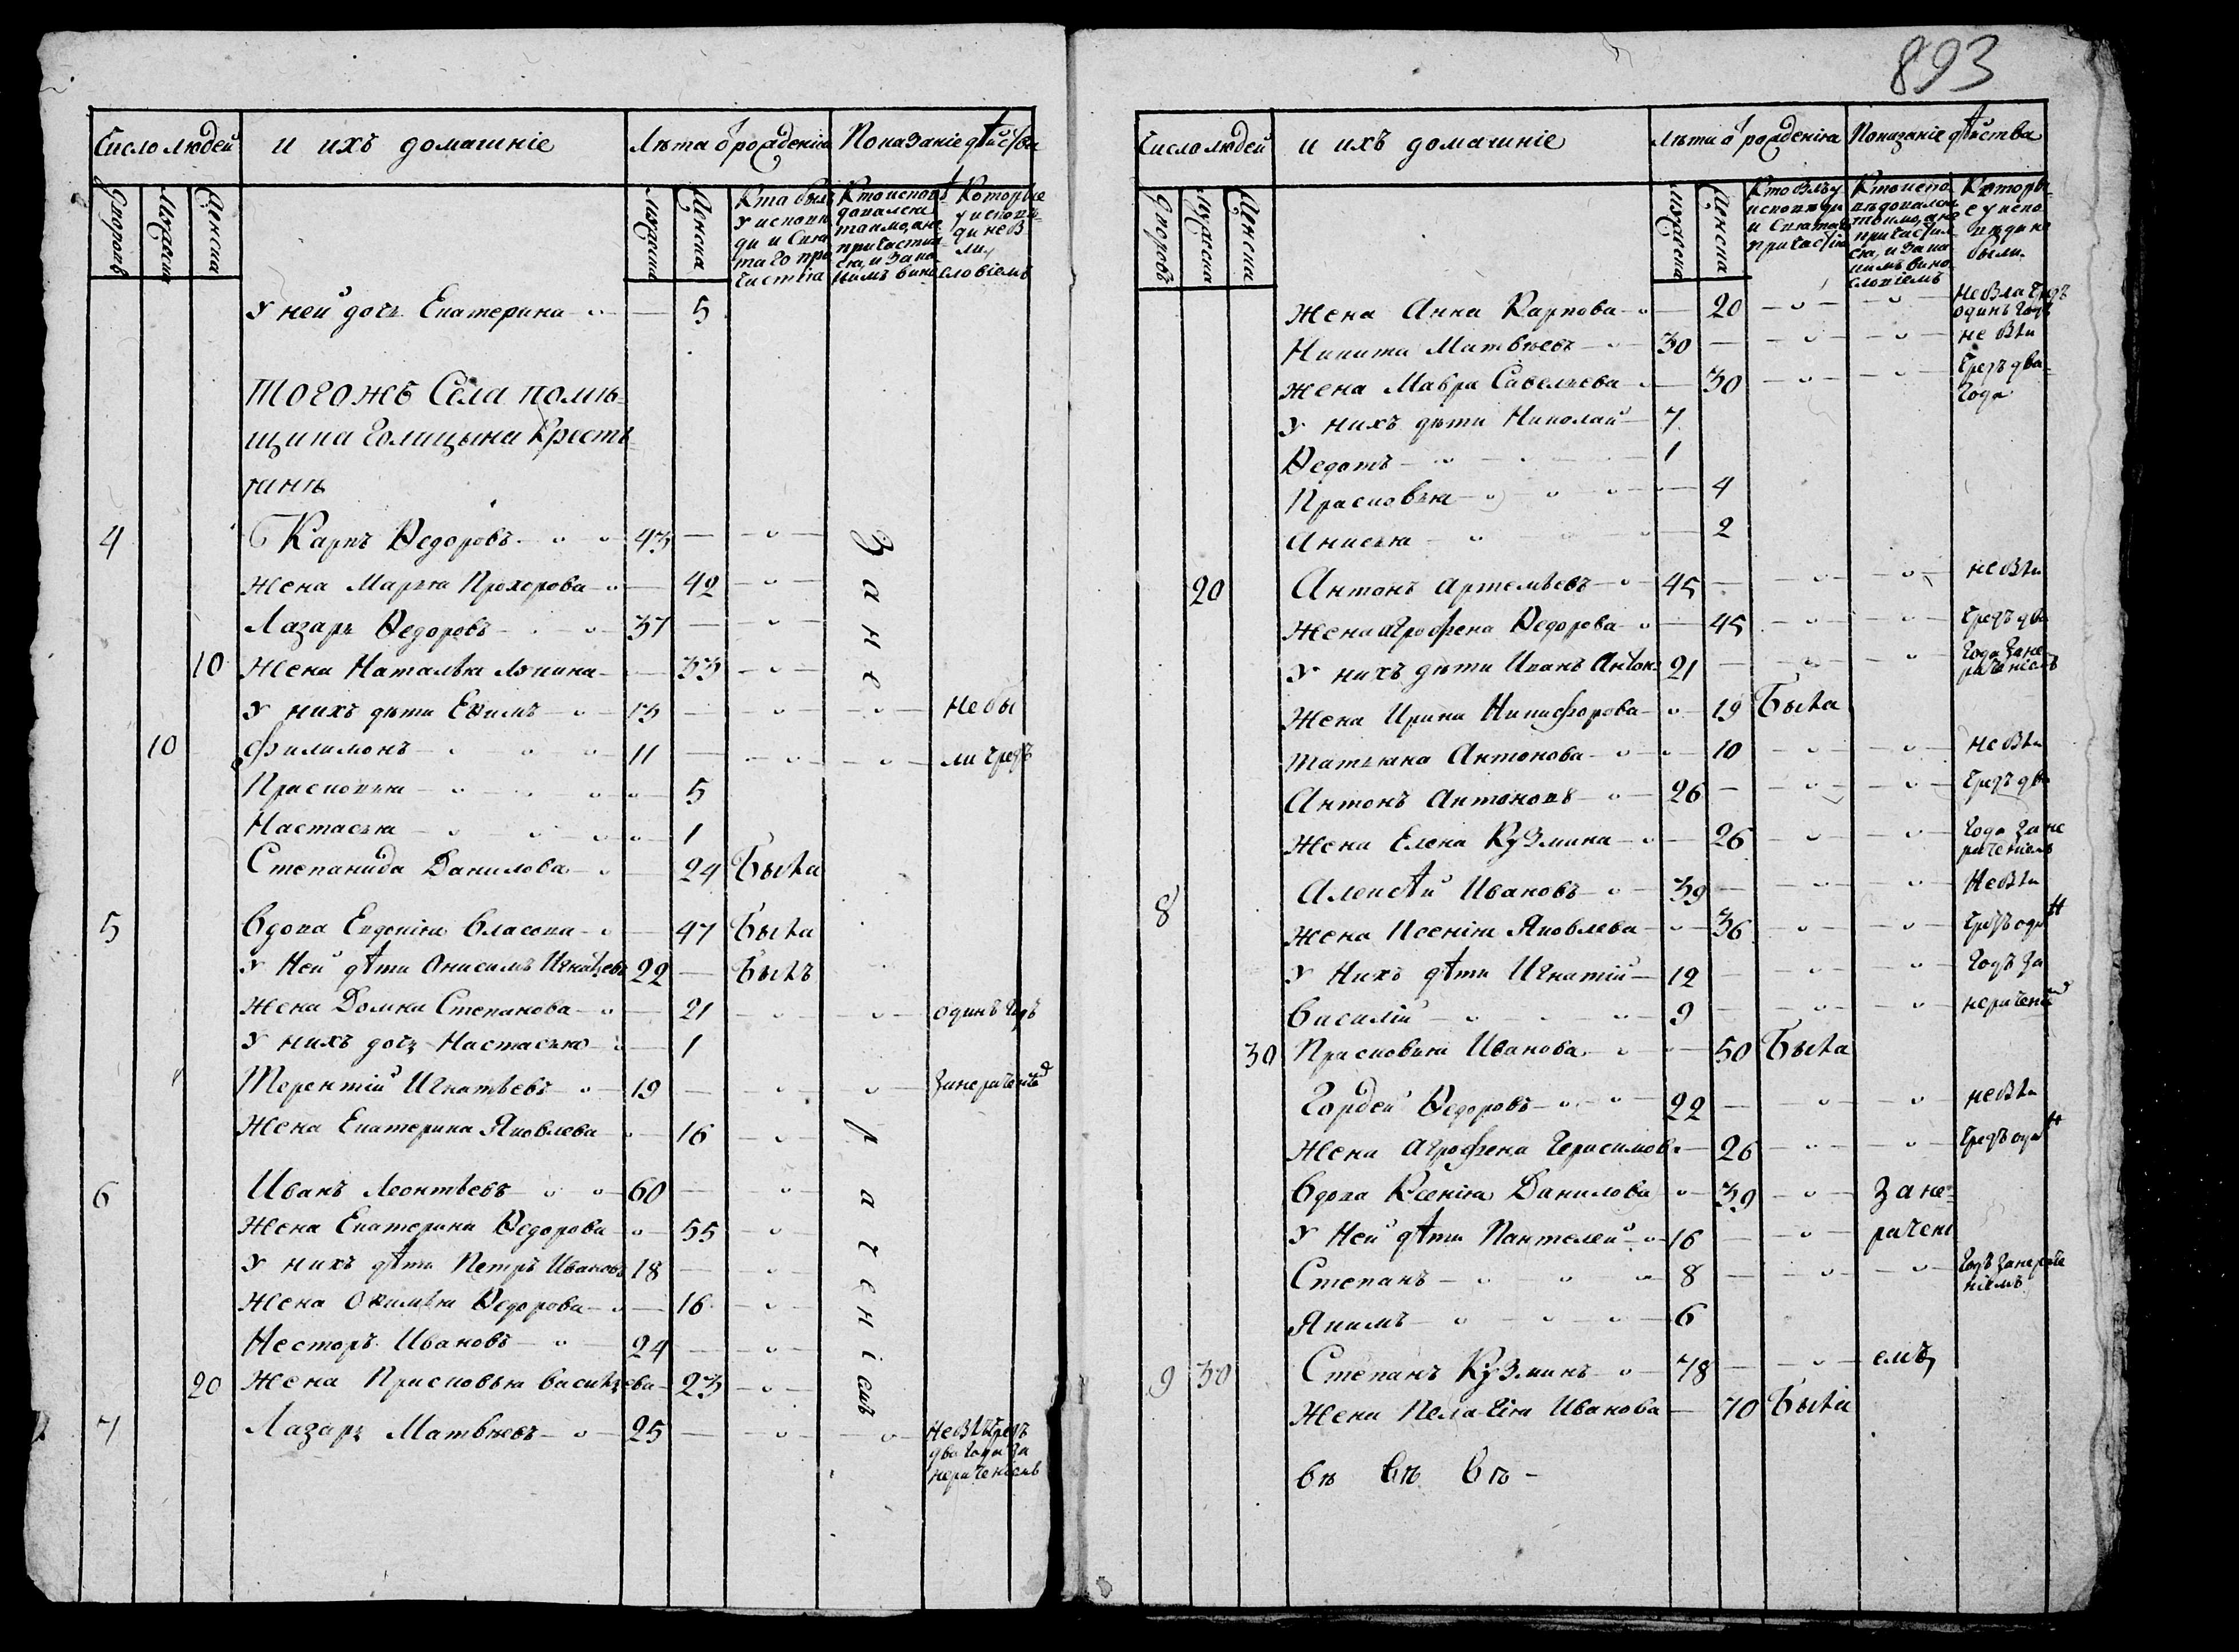 893
Число людей и ихъ домашніе Лѣта ѿ рожденія Показаніе дѣйства
Дворовъ Мужеска Женска Мужеска Женска Кто были у исповѣди и святаго причастія Кто исповѣдопался токмо, а не причастился, и за какимъ винословіемъ Которые у исповѣди не были
У ней дочь Екатерина 5
Того жъ Села помѣ-
щика Голицына Кресть
янѣ
4 Карпъ Ѳедоровъ 43 За не
Жена Марья Прохорова 42
Лазарь Ѳедоровъ 37
10 Жена Наталья Лукина 33
У нихъ дѣти Екимъ 13 не бы
10 Филимонъ 11 ли чрезъ
Прасковья 5
Настасья 1
Степанида Данилова 24 Была
5 Вдова Евдокія Власова 47 Была
У Ней дѣти Онисимъ Игнатьевъ 22 Былъ
Жена Домна Степанова 21 одинъ годъ
У нихъ дочь Настасья 1
Терентій Игнатьевъ 19 за нераченіемъ
Жена Екатерина Яковлева 16 раченіемъ
6 Иванъ Леонтьевъ 60
Жена Екатерина Ѳедорова 55
У нихъ дѣти Петръ Ивановъ 18
Жена Офимья Ѳедорова 16
Несторъ Ивановъ 24
20 Жена Прасковья Васильева 23
7 Лазарь Матвѣевъ 25 не были чрезъ
два года за
нераченіемъ
Число людей и ихъ домашніе лѣта ѿ рожденія Показаніе дѣйства
Дворовъ Мужеска Женска Мужеска Женска Кто былъ у исповѣди и святаго причастія Кто исповѣдопался токмо, а не причастился, и за какимъ винословіемъ Которые у исповѣди не были
Жена Анна Карпова 20 не была чрезъ
одинъ годъ
Никита Матвѣевъ 30 не были
Жена Мавра Савельева 30 чрезъ два
года
У нихъ дѣти Николай 7
Ѳедотъ 1
Прасковья 4
Анисья 2
20 Антонъ Артемьевъ 45 не были
Жена Агрофена Ѳедорова 45 чрезъ два
У нихъ дѣти Иванъ Антон 21 года за не
раченіемъ
Жена Ирина Никифорова 19 Была
Татьяна Антонова 10 не были
Антонъ Антоновъ 26 чрезъ два
Жена Елена Кузмина 26 года за не
раченіемъ
8 Алексѣй Ивановъ 39 не были
Жена Ксенія Яковлева 36 чрезъ один
У Нихъ дѣти Игнатій 12 годъ за
Василій 9 нераченіемъ
30 Прасковья Иванова 50 Была
Гордей Ѳедоровъ 22 не были
Жена Агрофена Герасимов 26 чрезъ один
Вдова Ксенія Данилова 39 За не-
У Ней дѣти Пантелей 16 рачені
Степанъ 8 годъ за нераче
ніемъ
Якимъ 6
9 30 Степанъ Кузминъ 78 емъ
Жена Пелагѣя Иванова 70 Была